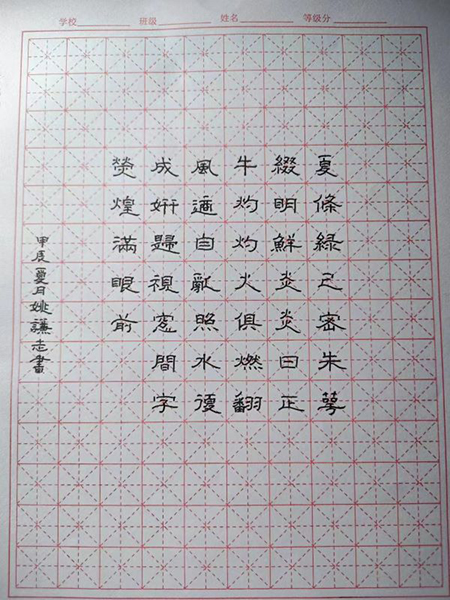 学校 班级 姓名 等级分
夏條綠已密朱萼
綴明鮮炎炎日正
午灼灼火俱燃翻
風適自亂照水復
成妍歸視窗間字
熒煌滿眼前
甲辰夏月姚謙志書